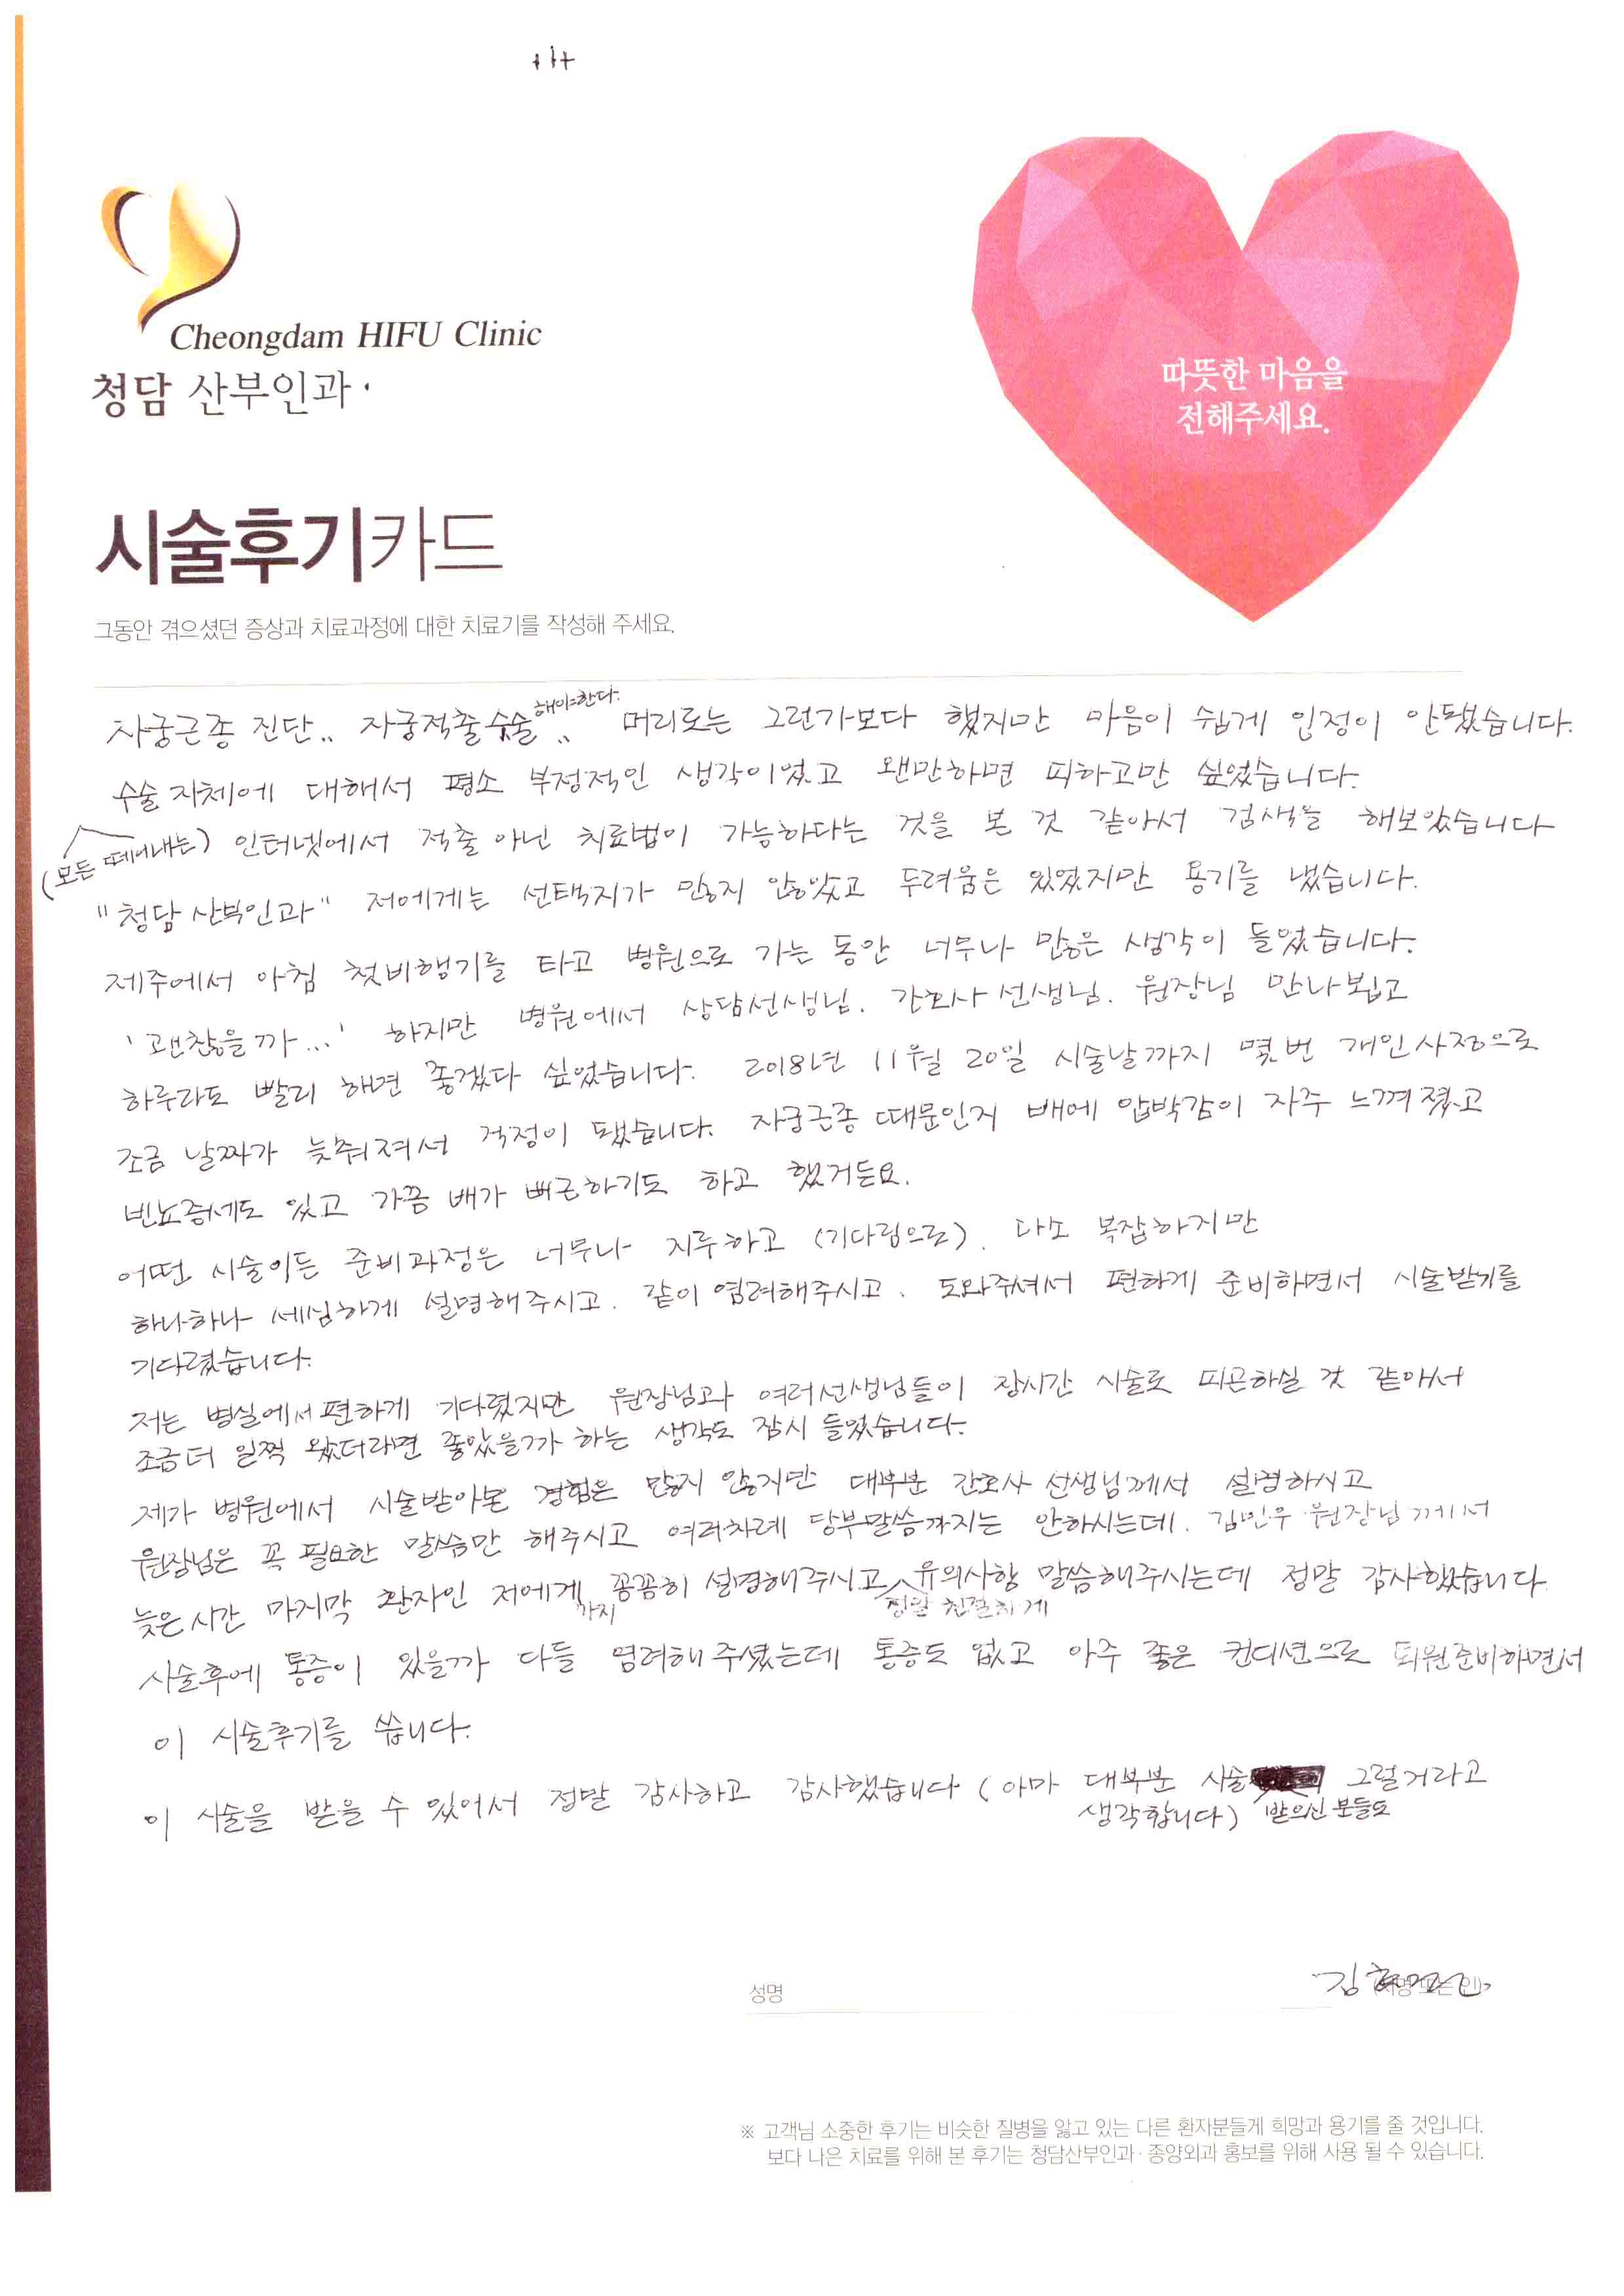 Cheongdam HIFU Clinic
청담 산부인과
따뜻한 마음을
전해주세요.
시술후기카드
그동안 겪으셨던 증상과 치료과정에 대한 치료기를 작성해 주세요.
자궁근종 진단.. 자궁적출수술 해야한다.. 머리로는 그런가보다 했지만 마음이 쉽게 인정이 안됐습니다.
수술 자체에 대해서 평소 부정적인 생각이었고 왠만하면 피하고만 싶었습니다.
(모든 떼어내는) 인터넷에서 적출 아닌 치료법이 가능하다는 것을 본 것 같아서 검색을 해보았습니다
"청담 산부인과" 저에게는 선택지가 많지 않았고 두려움은 있었지만 용기를 냈습니다.
제주에서 아침 첫비행기를 타고 병원으로 가는 동안 너무나 많은 생각이 들었습니다.
'괜찮을까...' 하지만 병원에서 상담선생님. 간호사 선생님. 원장님 만나뵙고
하루라도 빨리 해면 좋겠다 싶었습니다. 2018년 11월 20일 시술날까지 몇번 개인사정으로
조금 날짜가 늦춰져서 걱정이 됐습니다. 자궁근종 때문인지 배에 압박감이 자주 느껴졌고
빈뇨증세도 있고 가끔 배가 뻐근하기도 하고 했거든요.
어떤 시술이든 준비과정은 너무나 지루하고 (기다림으로). 다소 복잡하지만
하나하나 세심하게 설명해주시고. 같이 염려해주시고. 도와주셔서 편하게 준비하면서 시술받기를
기다렸습니다.
저는 병실에서 편하게 기다렸지만 원장님과 여러선생님들이 장시간 시술로 피곤하실 것 같아서
조금더 일찍 왔더라면 좋았을까 하는 생각도 잠시 들었습니다.
제가 병원에서 시술받아본 경험은 많지 않지만 대부분 간호사 선생님께서 설명하시고
원장님은 꼭 필요한 말씀만 해주시고 여러차례 당부말씀까지는 안하시는데. 김민우 원장님께서
늦은시간 마지막 환자인 저에게까지 꼼꼼히 설명해주시고 정말 친절하게 유의사항 말씀해주시는데 정말 감사했습니다
시술후에 통증이 있을까 다들 염려해 주셨는데 통증도 없고 아주 좋은 컨디션으로 퇴원준비하면서
이 시술후기를 씁니다.
이 시술을 받을 수 있어서 정말 감사하고 감사했습니다 (아마 대부분 시술 받으신 분들도 그럴거라고
생각합니다)
성명 김
※ 고객님 소중한 후기는 비슷한 질병을 앓고 있는 다른 환자분들게 희망과 용기를 줄 것입니다.
보다 나은 치료를 위해 본 후기는 청담산부인과·종양외과 홍보를 위해 사용 될 수 있습니다.